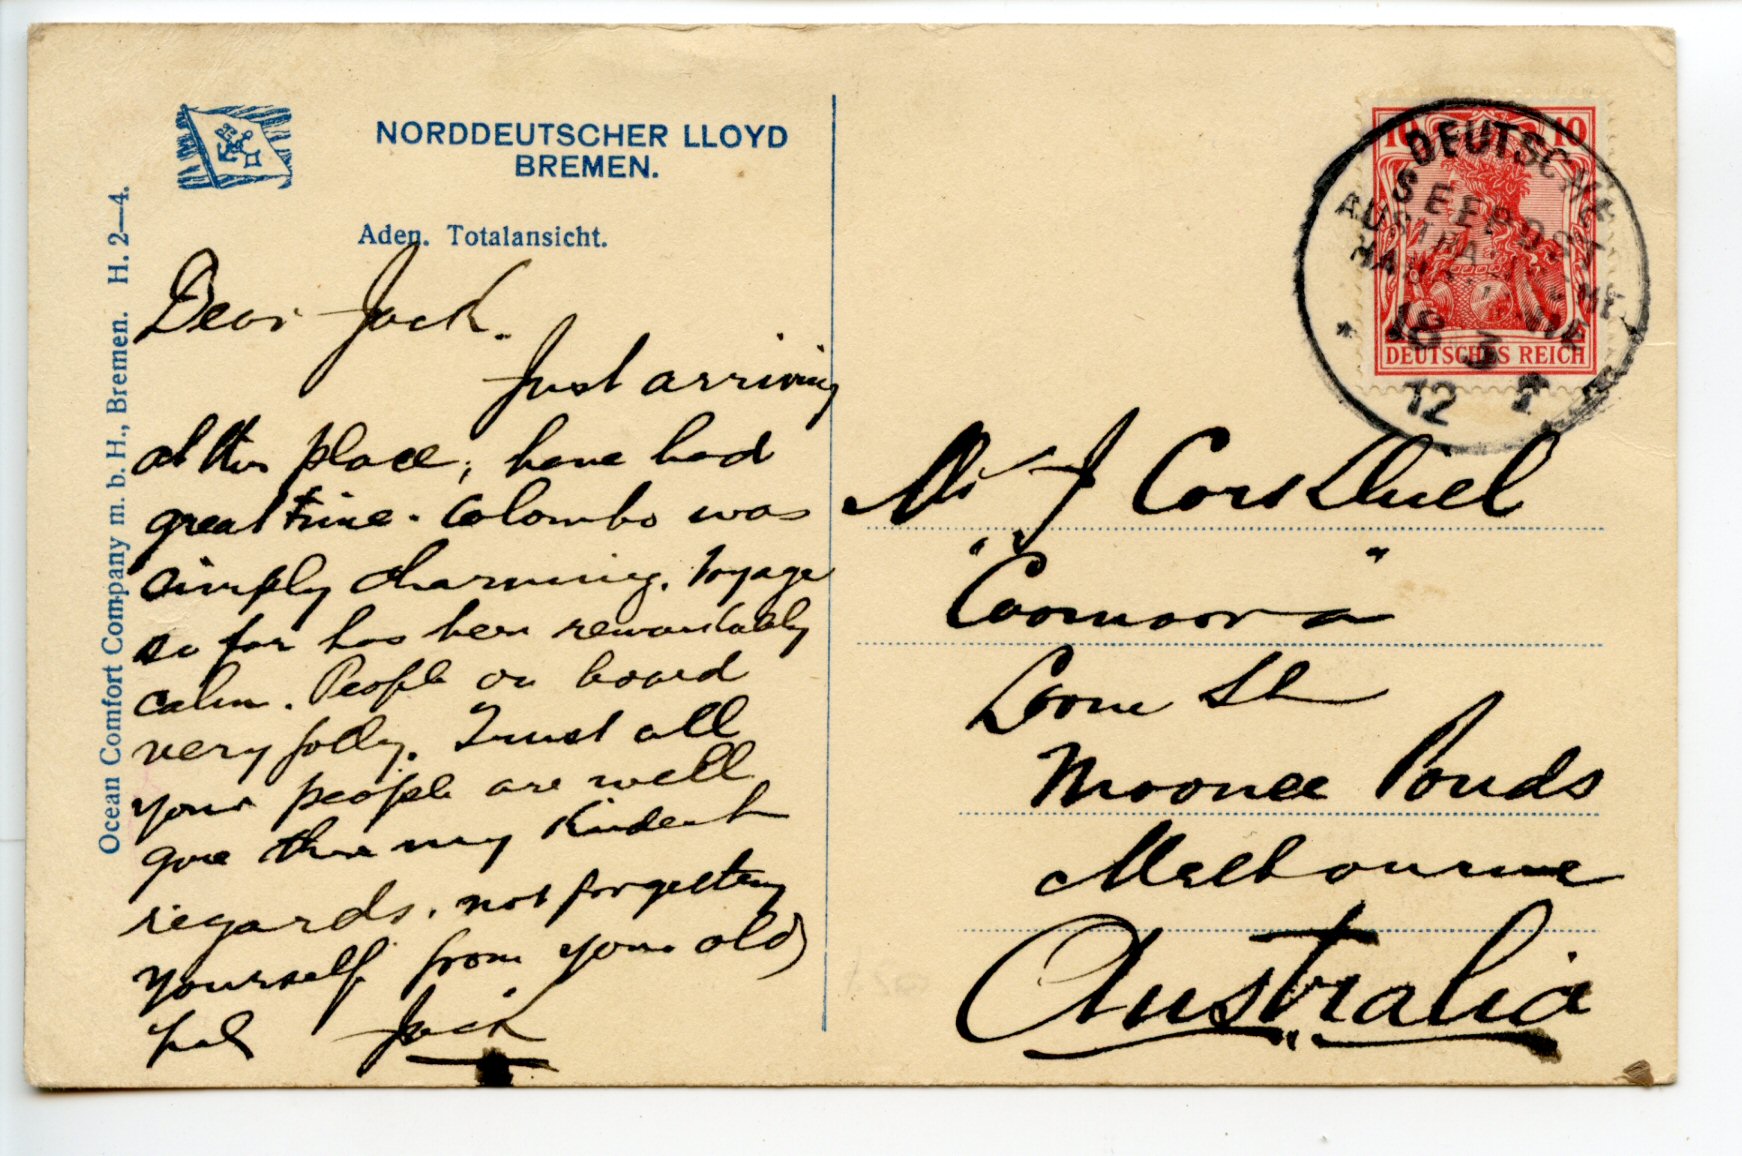 NORDDEUTSCHER LLOYD
BREMEN.
Aden. Totalansicht.
Ocean Comfort Company m. b. H., Bremen. H. 2—4.
Dear Jack.
Just arriving
at this place, have had
great time. Colombo was
simply charming. Voyage
so far has been remarkably
calm. People on board
very jolly. Trust all
your people are well
give them my kindest
regards. not forgetting
yourself from your old
pal Jack
10 10
DEUTSCHES REICH
DEUTSCHE
SEEPOST
AUSTRAL
HAUPTLINIE
18 3
12
Mr J
"Coomoora"
St
Moonee Ponds
Melbourne
Australia